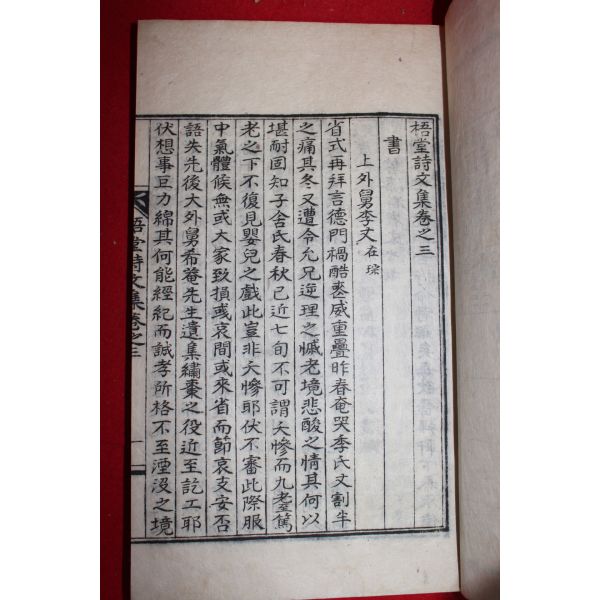 梧堂詩文集卷之三
書
上外舅李丈 在琮
省式再拜言德門禍酷慼威重疊昨春奄哭季氏丈割半
之痛其冬又遭令允兄逆理之慽老境悲酸之情其何以
堪耐固知子舍氏春秋已近七旬不可謂夭慘而九耋篤
老之下不復見嬰兒之戲此豈非夭慘耶伏不審此際服
中氣體候無或大家致損或哀間或來省而節哀支安否
語失先後大外舅希菴先生遺集繡棗之役近至訖工耶
伏想事巨力綿其何能經紀而誠孝所格不至湮沒之境
梧堂詩文集卷之三
一